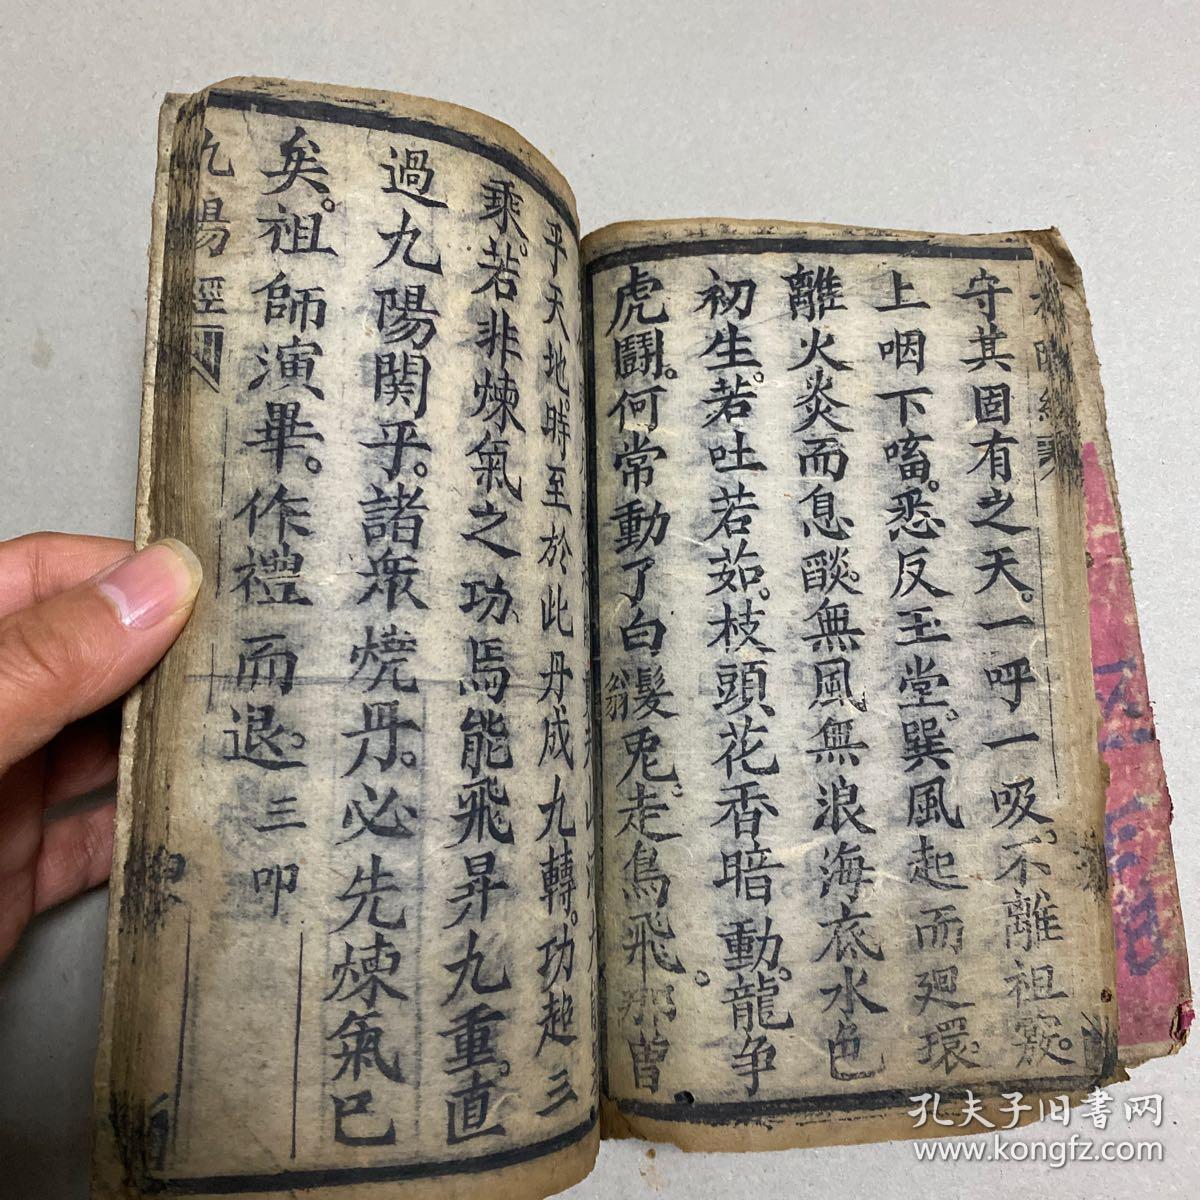 守其固有之天。一呼一吸。不離祖竅。
上咽下畜。悉反玉堂。巽風起而廻環。
離火炎而息燄。無風無浪海底水色
初生。若吐若茹。枝頭花香暗動。龍争
虎鬪。何常動了白髮翁。兎走鳥飛。那曽
乎天地時至於此丹成九轉。功超三
乘。若非煉氣之功。焉能飛昇九重。直
過九陽関乎。諸衆燒丹。必先煉氣已
矣。祖師演畢。作禮而退。三叩
九陽經
孔夫子旧書网
www.kongfz.com